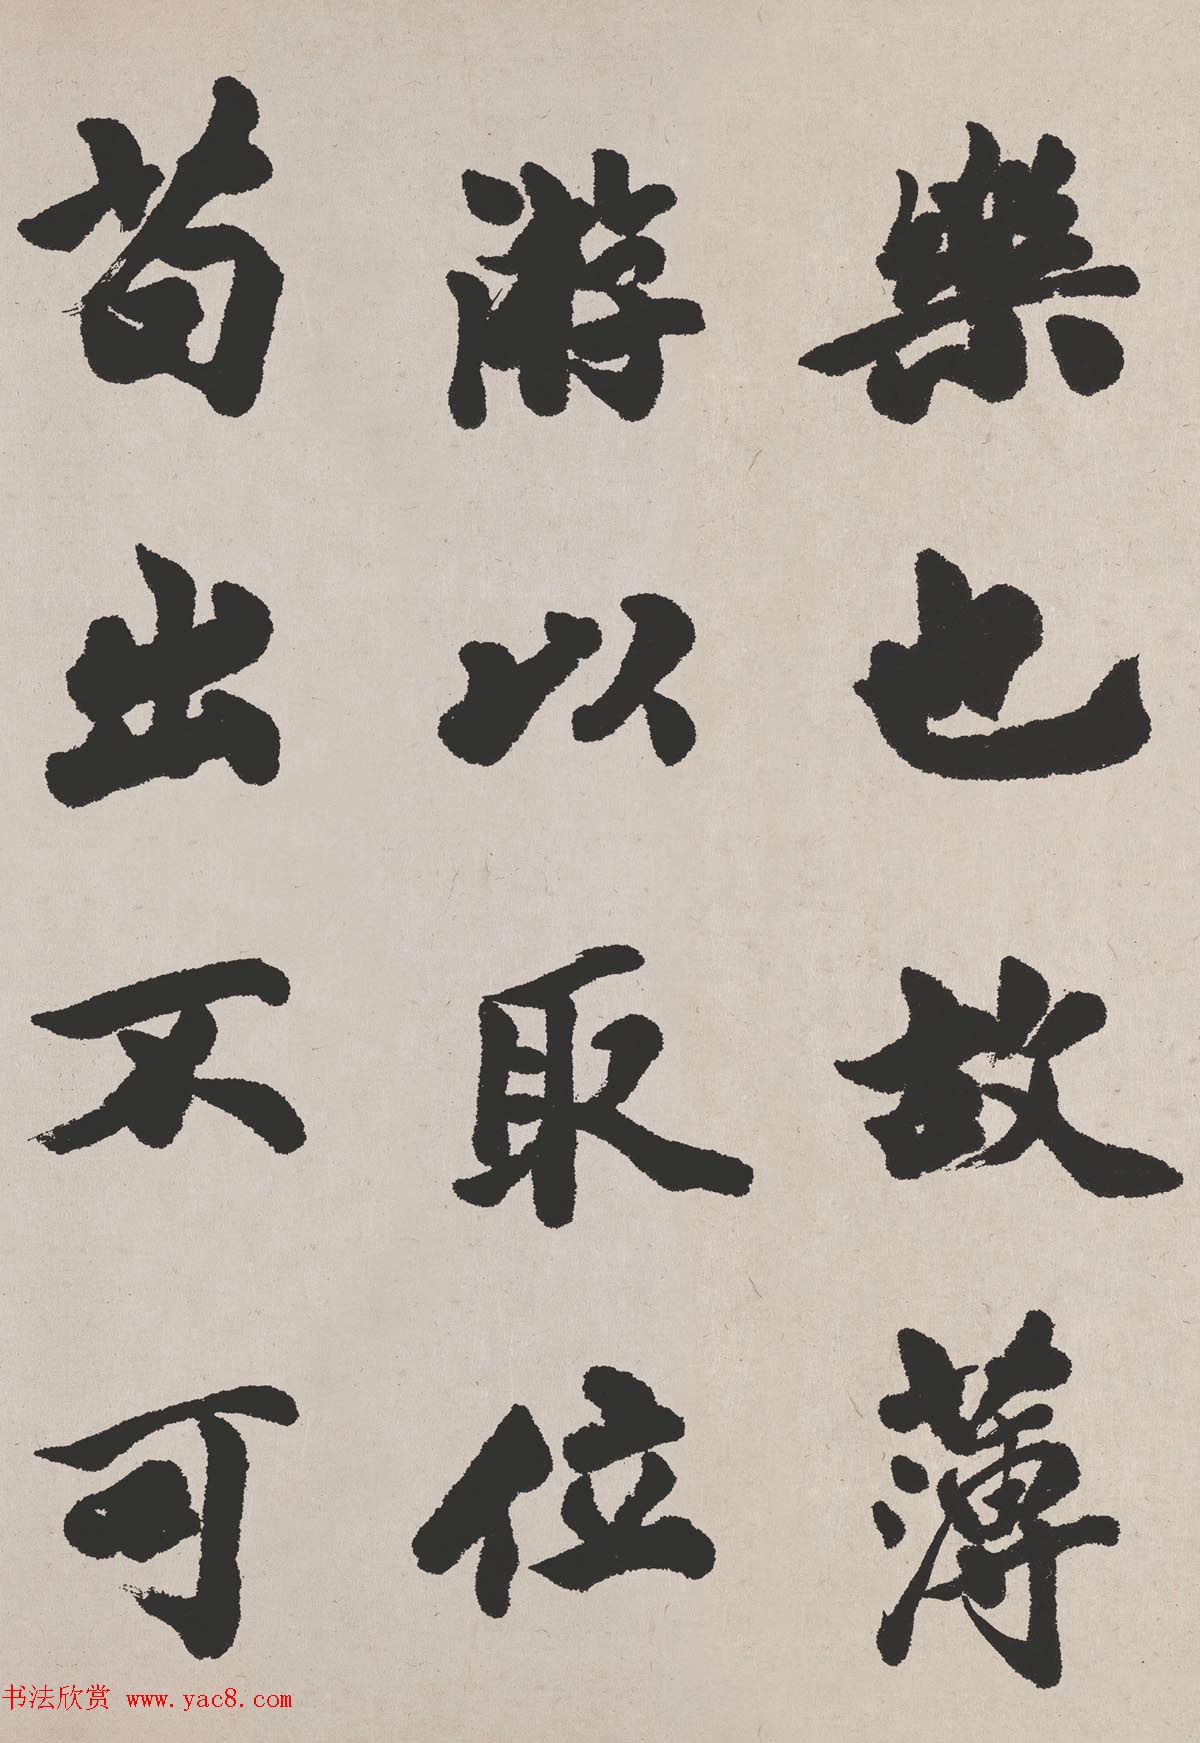 樂也故薄
游以取位
苟出不可
书法欣赏 www.yac8.com